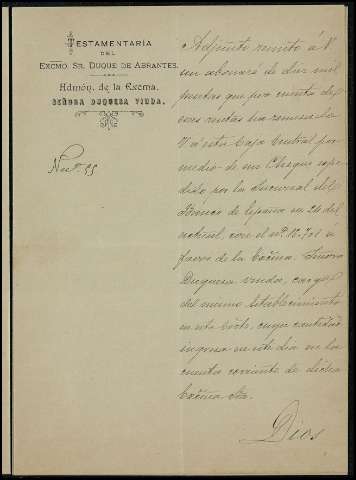 TESTAMENTARÍA
DEL
EXCMO. SR. DUQUE DE ABRANTES.
Admón. de la Excma.
SEÑORA DUQUESA VIUDA.
Num. 55
Adjunto remito á V.
un abonaré de diez mil
pesetas que por cuenta de
esas rentas ha remesado
V. á esta Caja Central por
medio de un Cheque expe-
dido por la Sucursal del
Banco de España en 24 del
actual, con el nº 12.701 á
favor de la Excma. Señora
Duquesa viuda, cargo
del mismo establecimiento
en esta Corte, cuya cantidad
ingresa en este dia en la
cuenta corriente de dicha
Excma. Sra.
Dios